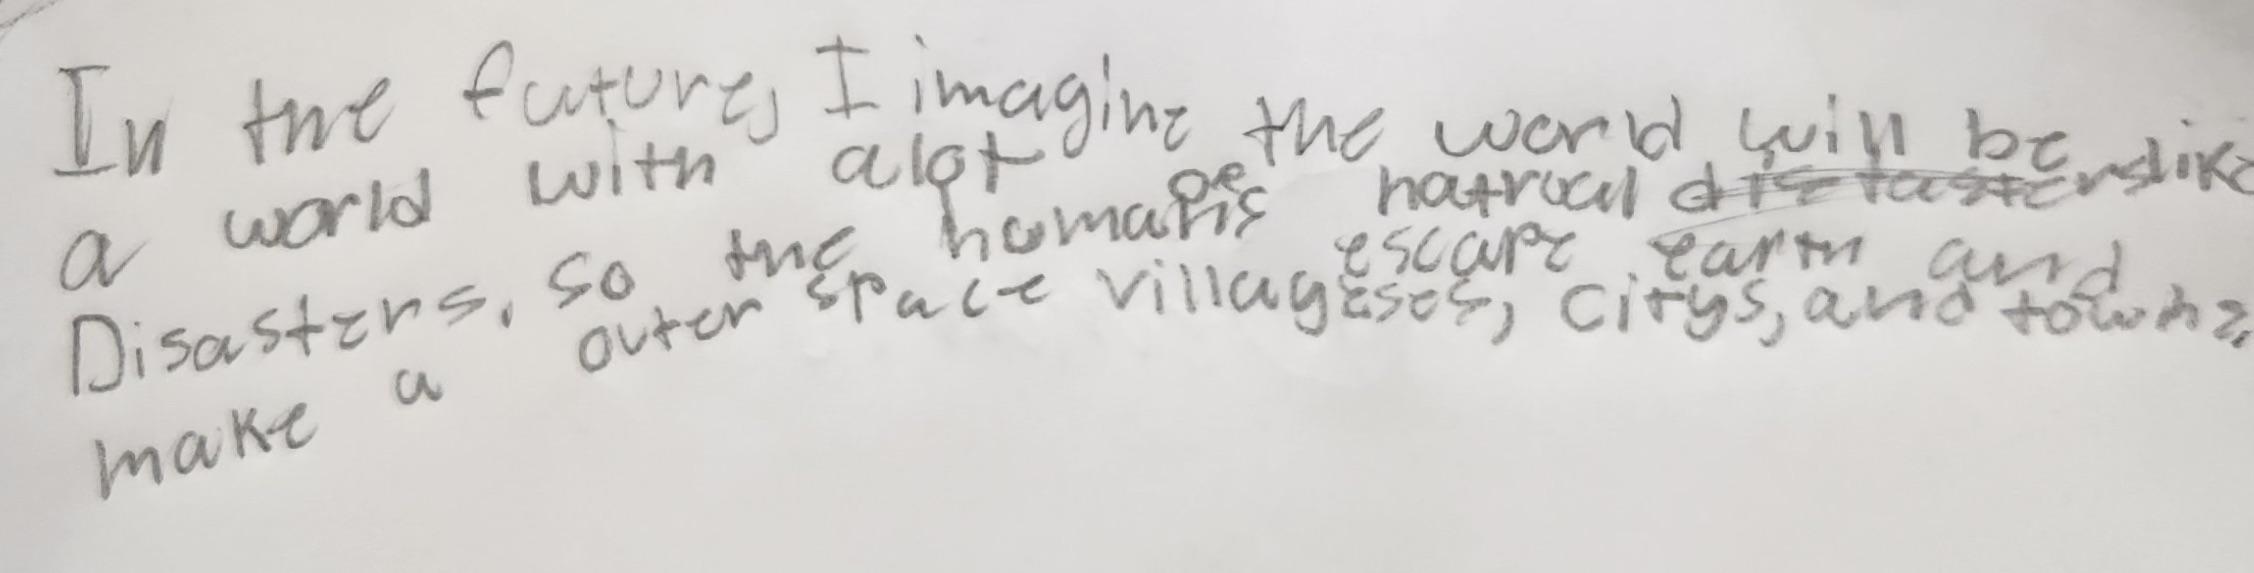 In the future, I imagine the world will be like
a world with alot oe natrual disasters
Disasters, so the humans escape earth and
make a outer space villageses, citys, and towns,